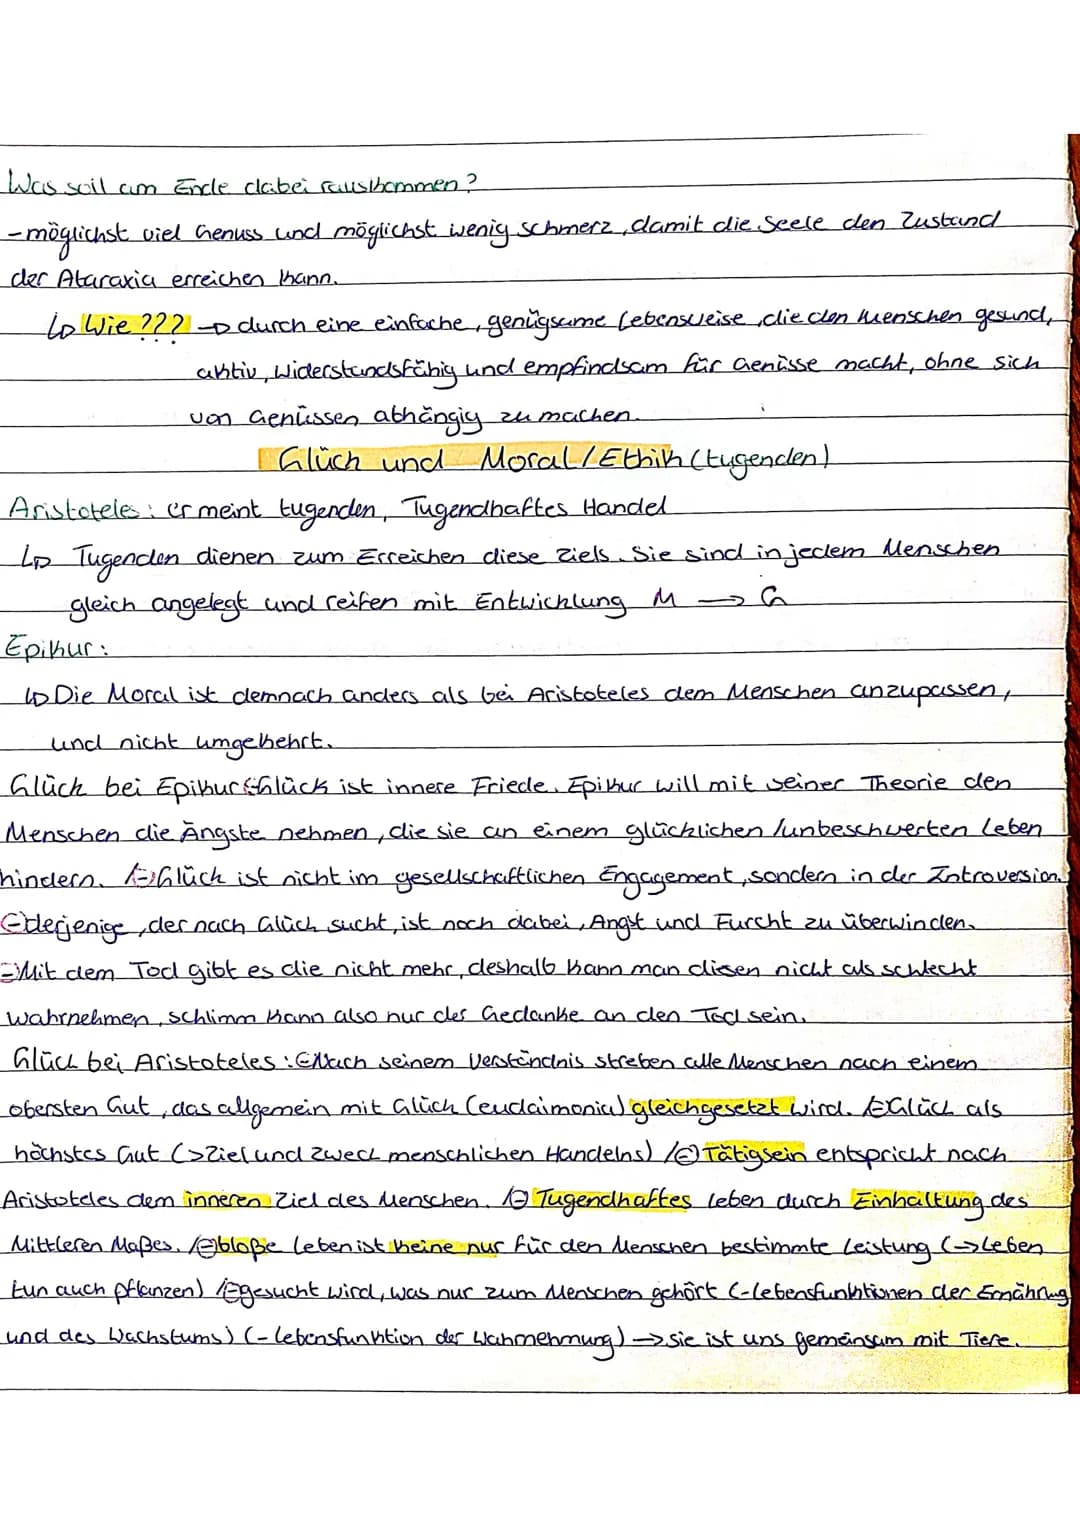 Was soll am Ende dabei rauskommen?
-möglichst viel Genuss und möglichst wenig schmerz, damit die Seele den Zustand
der Ataraxia erreichen kann.
↳ Wie ??? → durch eine einfache, genügsame Lebensweise, die den Menschen gesund,
aktiv, widerstandsfähig und empfindsam für Genüsse macht, ohne sich
von Genüssen abhängig zu machen.
Glück und Moral/Ethik (tugenden)
Aristoteles: er meint tugenden, Tugendhaftes Handel
↳ Tugenden dienen zum Erreichen diese Ziels. Sie sind in jedem Menschen
gleich angelegt und reifen mit Entwicklung M → G
Epikur:
↳ Die Moral ist demnach anders als bei Aristoteles dem Menschen anzupassen,
und nicht umgekehrt.
Glück bei Epikur: Glück ist innere Friede. Epikur will mit seiner Theorie den
Menschen die Ängste nehmen, die sie an einem glücklichen /unbeschwerten Leben
hindern. /⊖ Glück ist nicht im gesellschaftlichen Engagement, sondern in der Introversion.
⊖ derjenige, der nach Glück sucht, ist noch dabei, Angst und Furcht zu überwinden.
⊖ Mit dem Tod gibt es die nicht mehr, deshalb kann man diesen nicht als schlecht
wahrnehmen, schlimm kann also nur der Gedanke an den Tod sein.
Glück bei Aristoteles: ⊖ Nach seinem Verständnis streben alle Menschen nach einem
obersten Gut, das allgemein mit Glück (eudaimonia) gleichgesetzt wird. /⊖ Glück als
höchstes Gut (> Ziel und Zweck menschlichen Handelns) /⊖ Tätigsein entspricht nach
Aristoteles dem inneren Ziel des Menschen. /⊖ Tugendhaftes Leben durch Einhaltung des
Mittleren Maßes. /⊖ bloße Leben ist keine nur für den Menschen bestimmte Leistung (→ Leben
tun auch pflanzen) /⊖ gesucht wird, was nur zum Menschen gehört (-Lebensfunktionen der Ernährung
und des Wachstums) (- Lebensfunktion der Wahrnehmung) → sie ist uns gemeinsam mit Tiere.